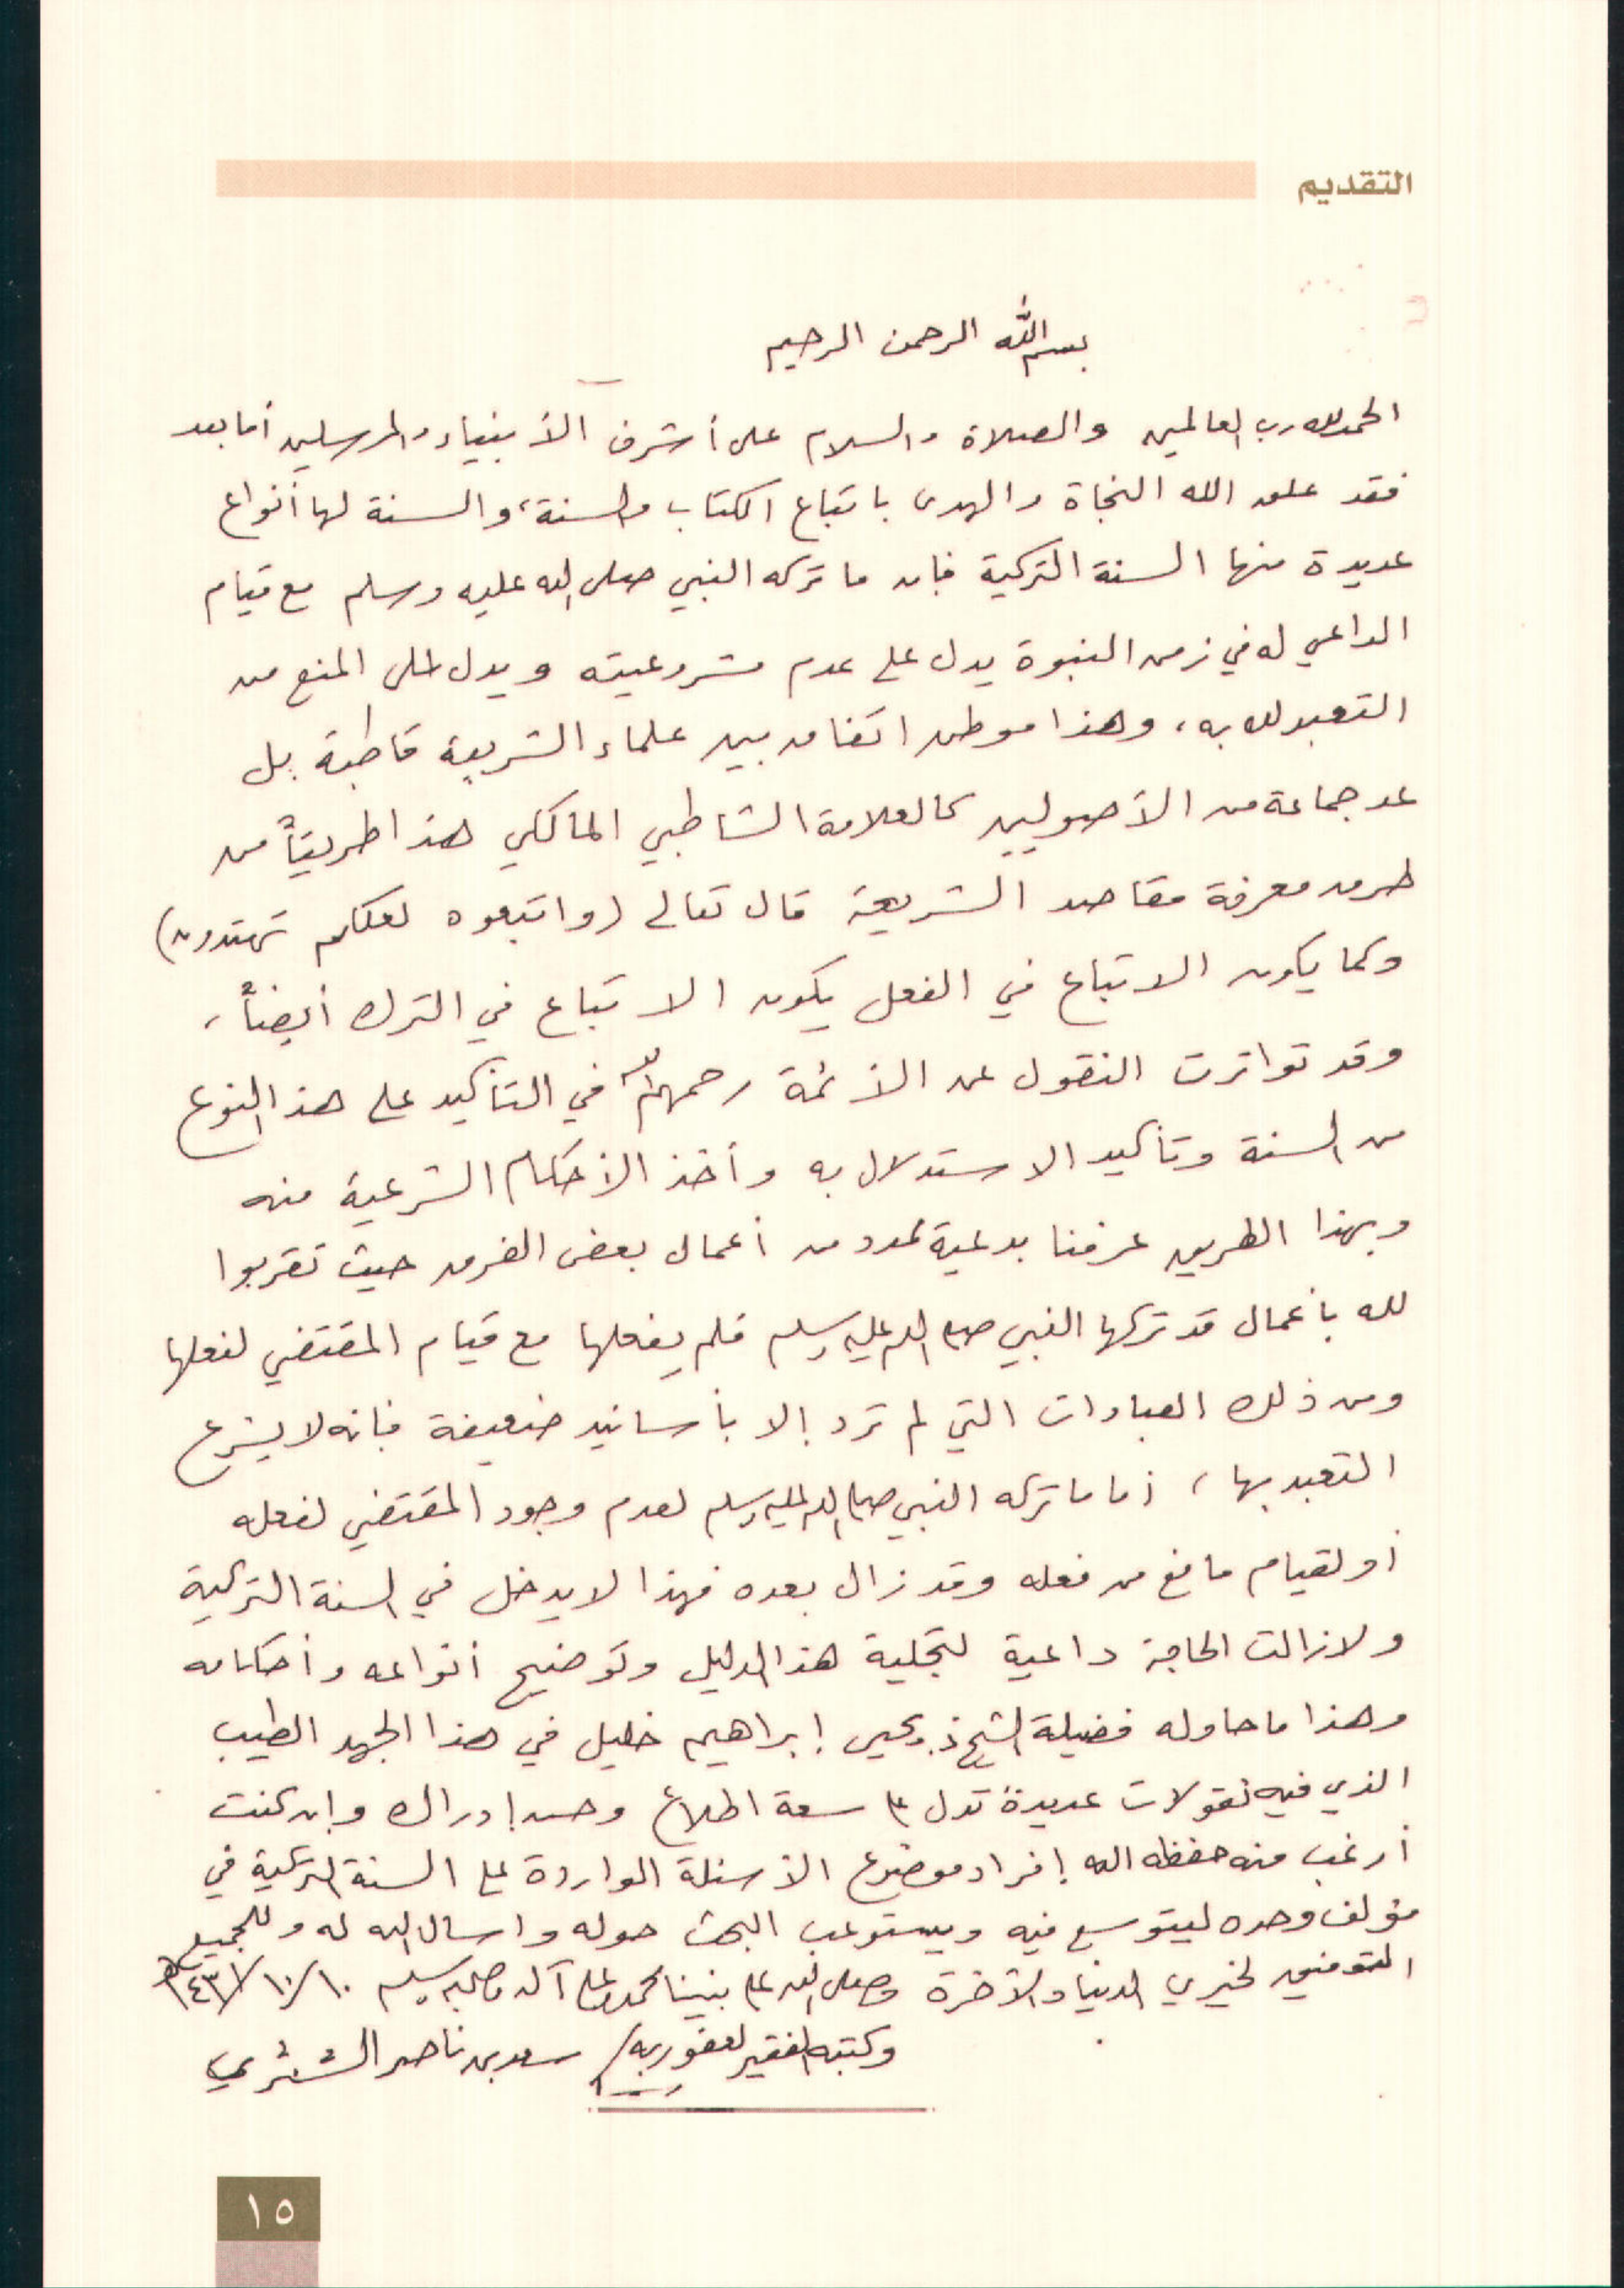 التقديم
بسم الله الرحمن الرحيم
الحمد لله رب العالمين والصلاة والسلام على أشرف الأنبياء والمرسلين أما بعد
فقد علق الله النجاة والهدى باتباع الكتاب والسنة، والسنة لها أنواع
عديدة منها السنة التركية فإن ما تركه النبي صلى الله عليه وسلم مع قيام
الداعي له في زمن النبوة يدل على عدم مشروعيته ويدل على المنع من
التعبد لله به، وهذا موطن اتفاق بين علماء الشريعة قاطبة بل
عد جماعة من الأصوليين كالعلامة الشاطبي المالكي هذا طريقاً من
طرق معرفة مقاصد الشريعة قال تعالى (واتبعوه لعلكم تهتدون)
وكما يكون الاتباع في الفعل يكون الاتباع في الترك أيضاً،
وقد تواترت النقول عن الأئمة رحمهم الله في التأكيد على هذا النوع
من السنة وتأكيد الاستدلال به وأخذ الأحكام الشرعية منه
وبهذا الطريق عرفنا بدعية عدد من أعمال بعض الفرق حيث تقربوا
لله بأعمال قد تركها النبي صلى الله عليه وسلم فلم يفعلها مع قيام المقتضي لفعلها
ومن ذلك العبادات التي لم ترد إلا بأسانيد ضعيفة فإنه لا يشرع
التعبد بها، أما ما تركه النبي صلى الله عليه وسلم لعدم وجود المقتضي لفعله
أو لقيام مانع من فعله وقد زال بعده فهذا لا يدخل في السنة التركية
ولا زالت الحاجة داعية لتجلية هذا الدليل وتوضيح أنواعه وأحكامه
وهذا ما حاوله فضيلة الشيخ يحيى إبراهيم خليل في هذا الجهد الطيب
الذي فيه نقولات عديدة تدل على سعة اطلاع وحسن إدراك وإن كنت
أرغب منه حفظه الله إفراد موضوع الأسئلة الواردة على السنة التركية في
مؤلف وحده ليتوسع فيه ويستوعب البحث حوله واسأل الله له وللجميع
التوفيق لخيري الدنيا والآخرة وصلى الله على نبينا محمد وعلى آله وصحبه وسلم ١٠/١٠/١٤٣١هـ
وكتبه الفقير لعفو ربه/ سعد بن ناصر الشثري
١٥